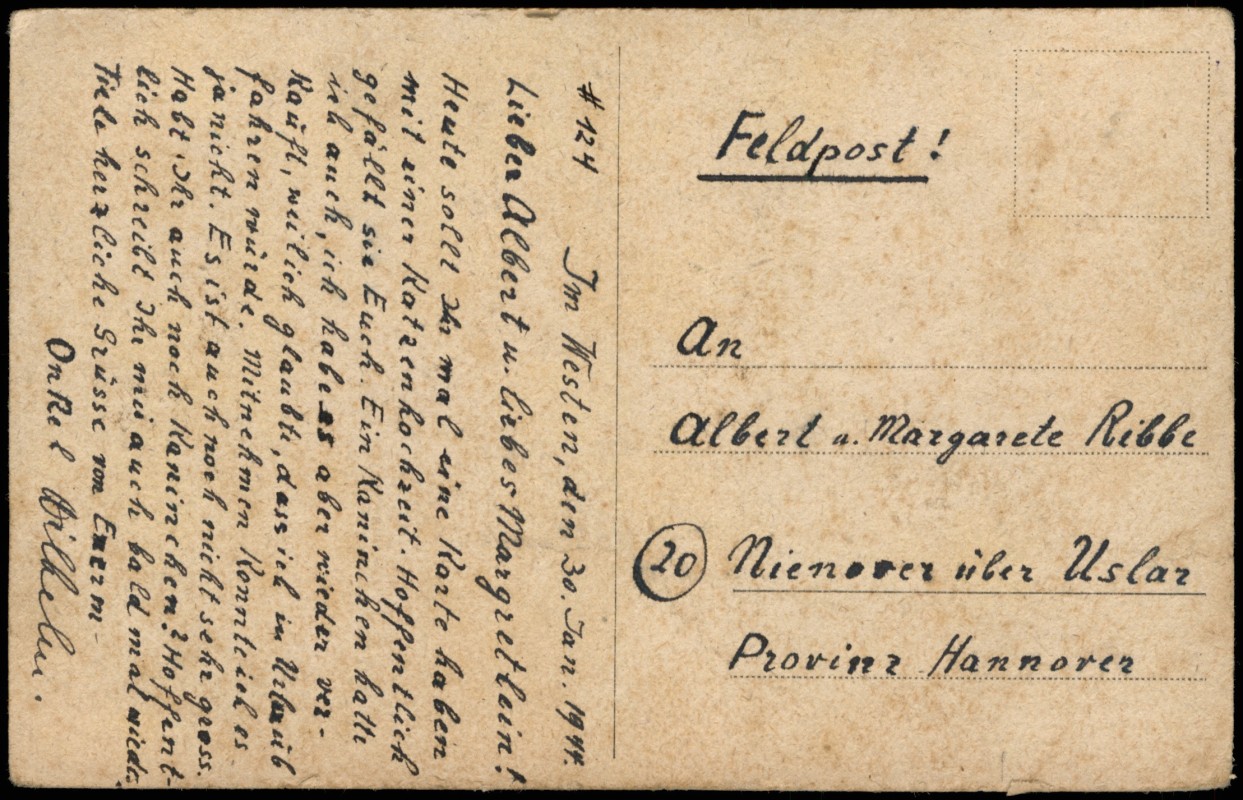 # 124 Im Westen, den 30. Jan. 1944.
Lieber Albert u. liebes Margretlein!
Heute sollt Ihr mal eine Karte haben
mit einer Katzenhochzeit. Hoffentlich
gefällt sie Euch. Ein Kaninchen hatte
ich auch, ich habe es aber wieder ver-
kauft, weil ich glaubte, dass ich in Urlaub
fahren würde. Mitnehmen konnte ich es
ja nicht. Es ist auch noch nicht sehr gross.
Habt Ihr auch noch Kaninchen? Hoffent-
lich schreibt Ihr mir auch bald mal wieder.
Viele herzliche Grüsse von Euerm-
Onkel Wilhelm.
Feldpost!
An
Albert u. Margarete Ribbe
20 Nienover über Uslar
Provinz Hannover